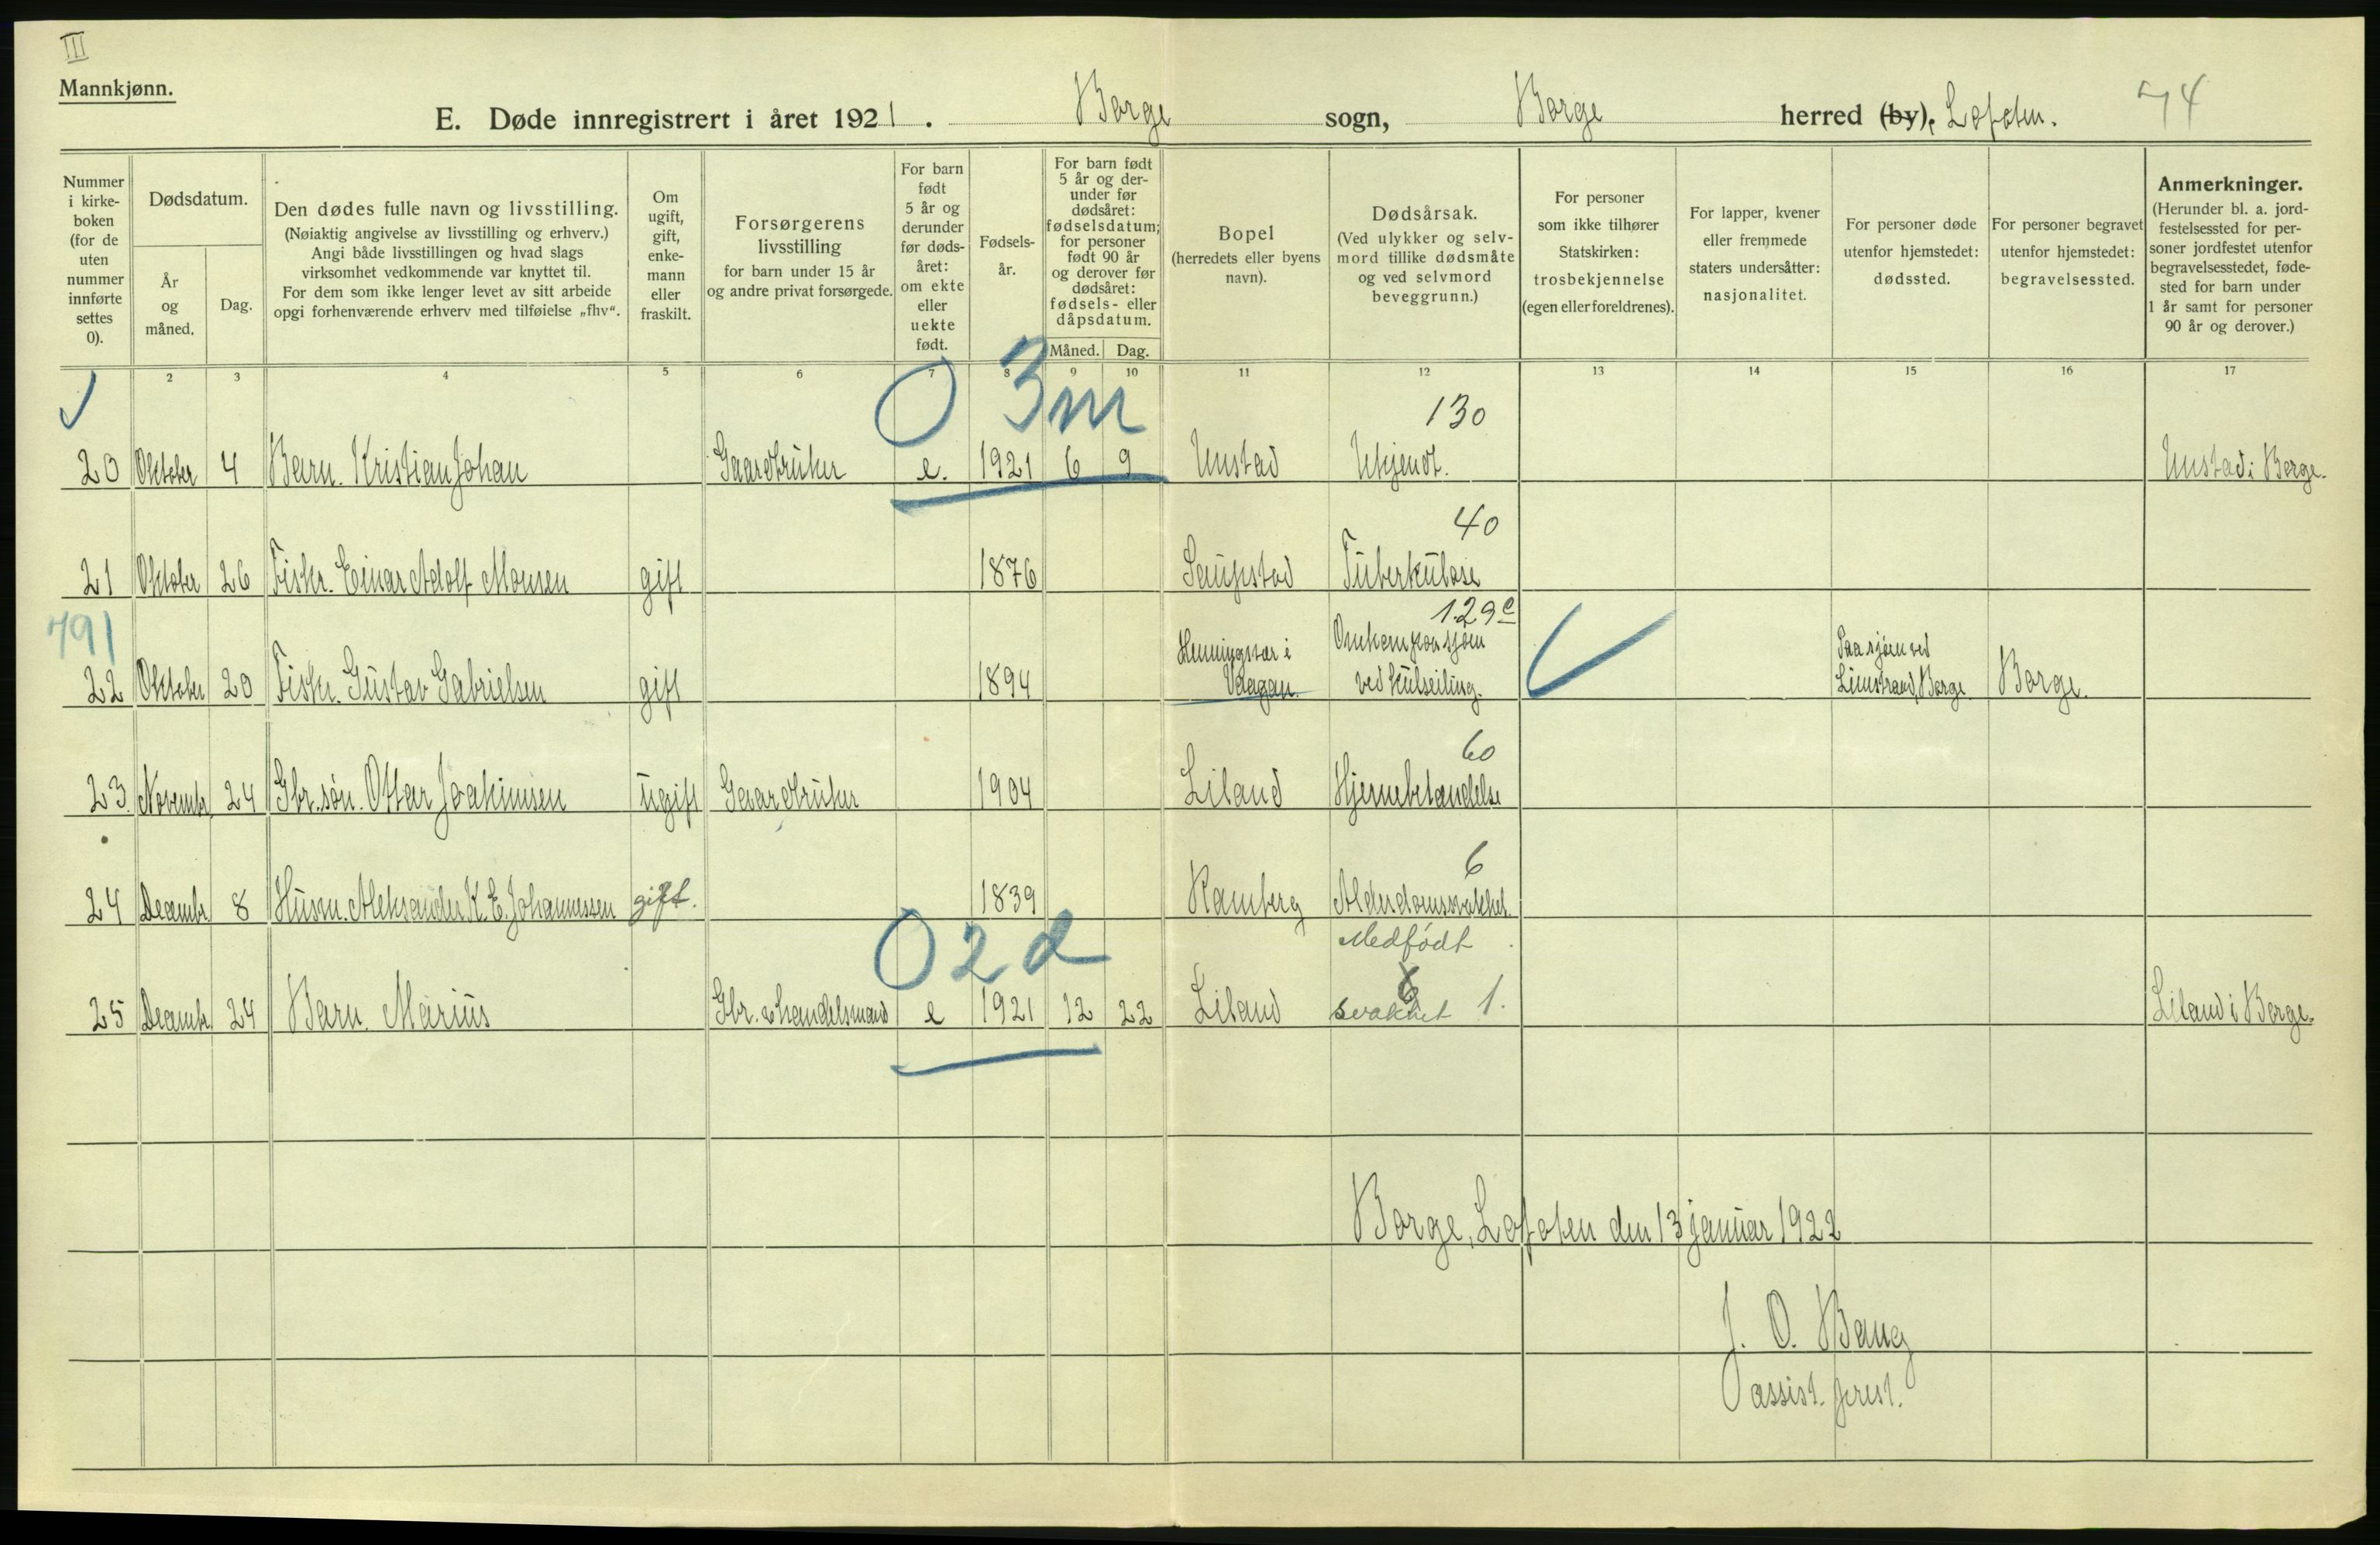 III
Mannkjønn.
E. Døde innregistrert i året 1921. Borge sogn, Borge herred (by), Lofoten. 74
Nummer i kirke- boken (for de uten nummer innførte settes 0).
Dødsdatum.
År og måned.
Dag.
Den dødes fulle navn og livsstilling.
(Nøiaktig angivelse av livsstilling og erhverv.)
Angi både livsstillingen og hvad slags
virksomhet vedkommende var knyttet til.
For dem som ikke lenger levet av sitt arbeide
opgi forhenværende erhverv med tilføielse „fhv“.
Om ugift, gift, enke- mann eller fraskilt.
Forsørgerens livsstilling
for barn under 15 år
og andre privat forsørgede.
For barn født 5 år og derunder før døds- året: om ekte eller uekte født.
Fødsels- år.
For barn født 5 år og der- under før dødsåret: fødselsdatum; for personer født 90 år og derover før dødsåret: fødsels- eller dåpsdatum.
Måned. Dag.
Bopel
(herredets eller byens navn).
Dødsårsak.
(Ved ulykker og selv- mord tillike dødsmåte og ved selvmord beveggrunn.)
For personer som ikke tilhører Statskirken: trosbekjennelse (egen eller foreldrenes).
For lapper, kvener eller fremmede staters undersåtter: nasjonalitet.
For personer døde utenfor hjemstedet: dødssted.
For personer begravet utenfor hjemstedet: begravelsessted.
Anmerkninger.
(Herunder bl. a. jord- festelsessted for per- soner jordfestet utenfor begravelsesstedet, føde- sted for barn under 1 år samt for personer 90 år og derover.)
2 3 4 5 6 7 8 9 10 11 12 13 14 15 16 17
0 3 m 130
20 Oktober 4 Barn. Kristian Johan Gaardbruker e. 1921 6 9 Unstad Ukjendt. Unstad i Borge.
40
21 Oktober 26 Fisker. Einar Adolf Monsen gift 1876 Saupstad Tuberkulose
791 129c
22 Oktober 20 Fisker. Gustav Gabrielsen gift 1894 Henningsvær i Vaagan. Omkom paa sjøen ved kulseiling. Paa sjøen ved Limstrand, Borge. Borge.
60
23 Novembr. 24 Gbr. søn. Ottar Joakimsen ugift Gaardbruker 1904 Liland Hjernebetændelse
6
24 Decembr. 8 Husm. Aleksander K. E. Johannessen gift. 1839 Ramberg Alderdomssvakhet.
0 2 d Medfødt
25 Decembr. 24 Barn. Marius Gbr. & handelsmand e 1921 12 22 Liland svakhet 1. Liland i Borge.
Borge, Lofoten den 13 januar 1922
J. O. Bang
assist. prest.